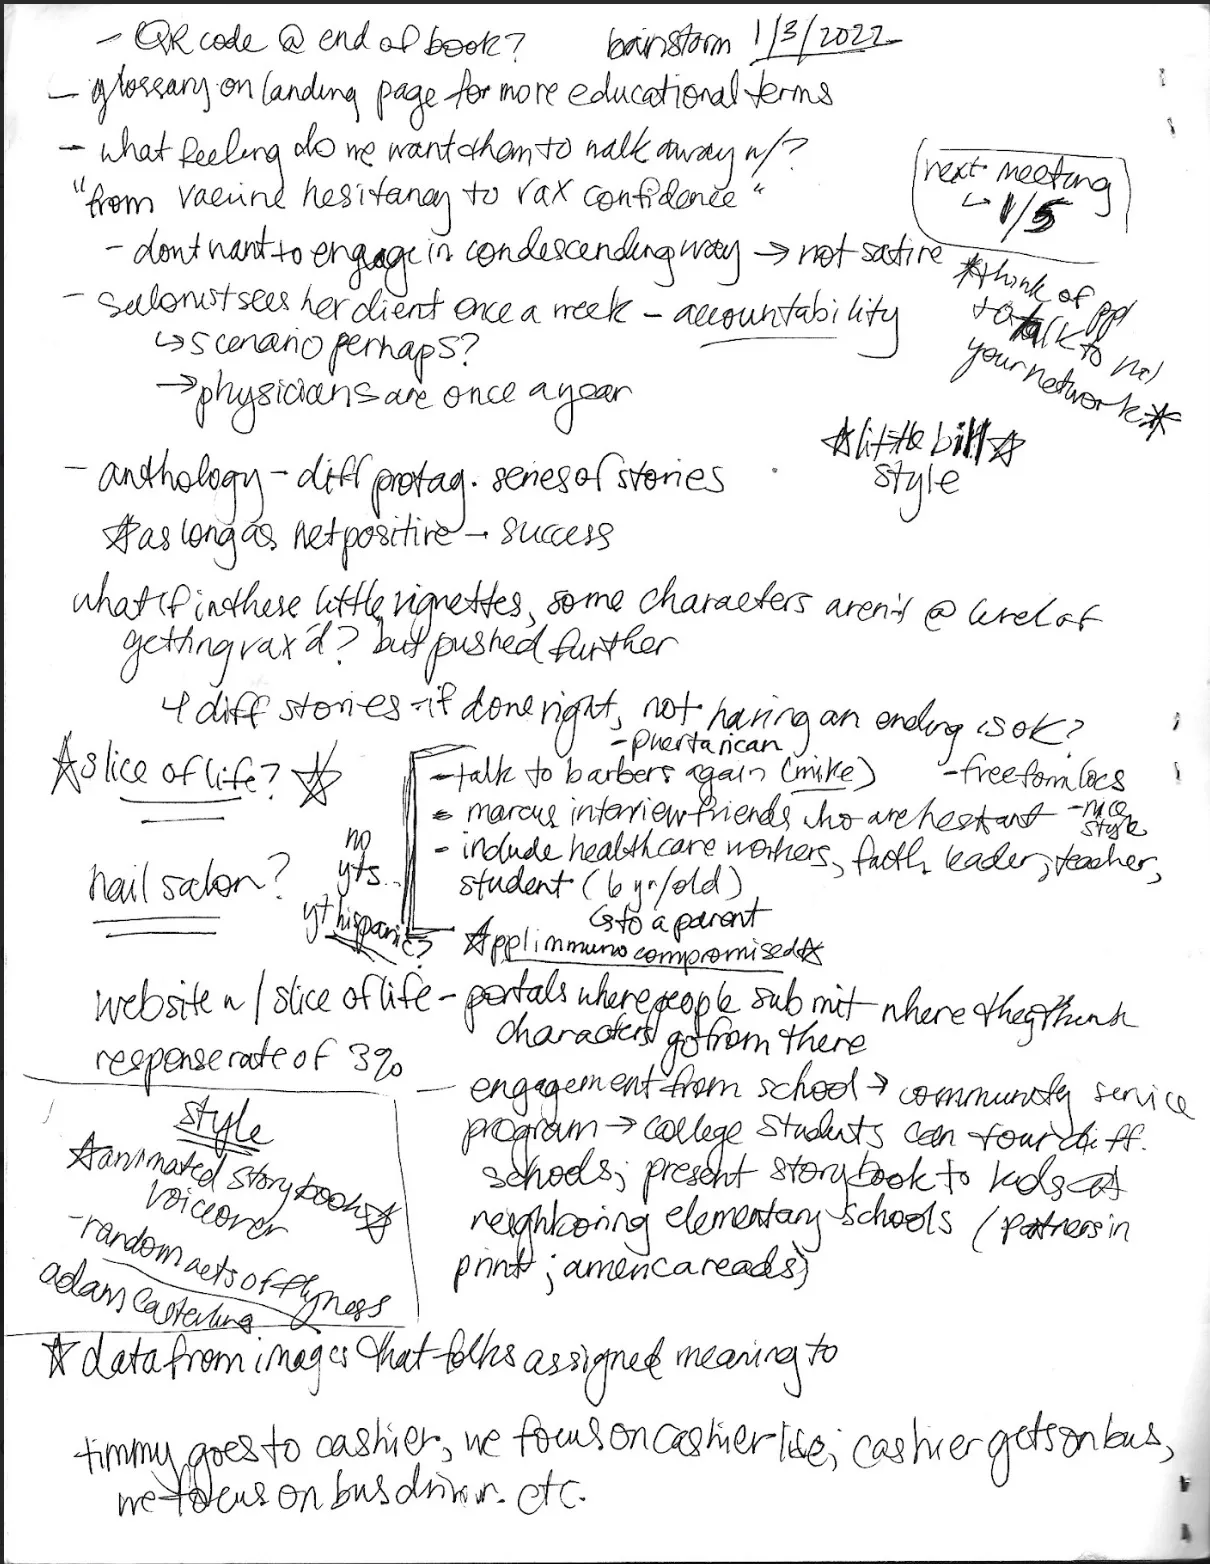 - QR code @ end of book?
brainstorm 1/3/2022
- glossary on landing page for more educational terms
- what feeling do we want them to walk away w/?
"from vaccine hesitancy to vax confidence"
next meeting
↳ 1/5
- dont want to engage in condescending way → not satire
☆think of ppl
to talk to w/
your network☆
- salonist sees her client once a week - accountability
↳ scenario perhaps?
→ physicians are once a year
☆little bill☆
style
- anthology - diff protag. series of stories
☆as long as net positive → success
what if in these little vignettes, some characters aren't @ level of
getting vax'd? but pushed further
4 diff stories - if done right, not having an ending is ok?
☆slice of life?☆
nail salon?
no
yts..
yt hispanic?
- puertarican
- talk to barbers again (mike)
- freeform locs
- marcus interview friends who are hesitant
- nice
style
- include healthcare workers, faith leader, teacher,
student (6 yr/old)
↳ to a parent
☆ppl immuno compromised☆
website w/ slice of life - portals where people submit where they think
characters go from there
response rate of 3%
- engagement from school → community service
program → college students can tour diff.
schools; present storybook to kids at
neighboring elementary schools (partners in
print; america reads)
style
☆animated storybook☆
voiceover
- random acts of flyness
adam
☆ data from images that folks assigned meaning to
timmy goes to cashier, we focus on cashier life; cashier gets on bus,
we focus on bus driver. etc.